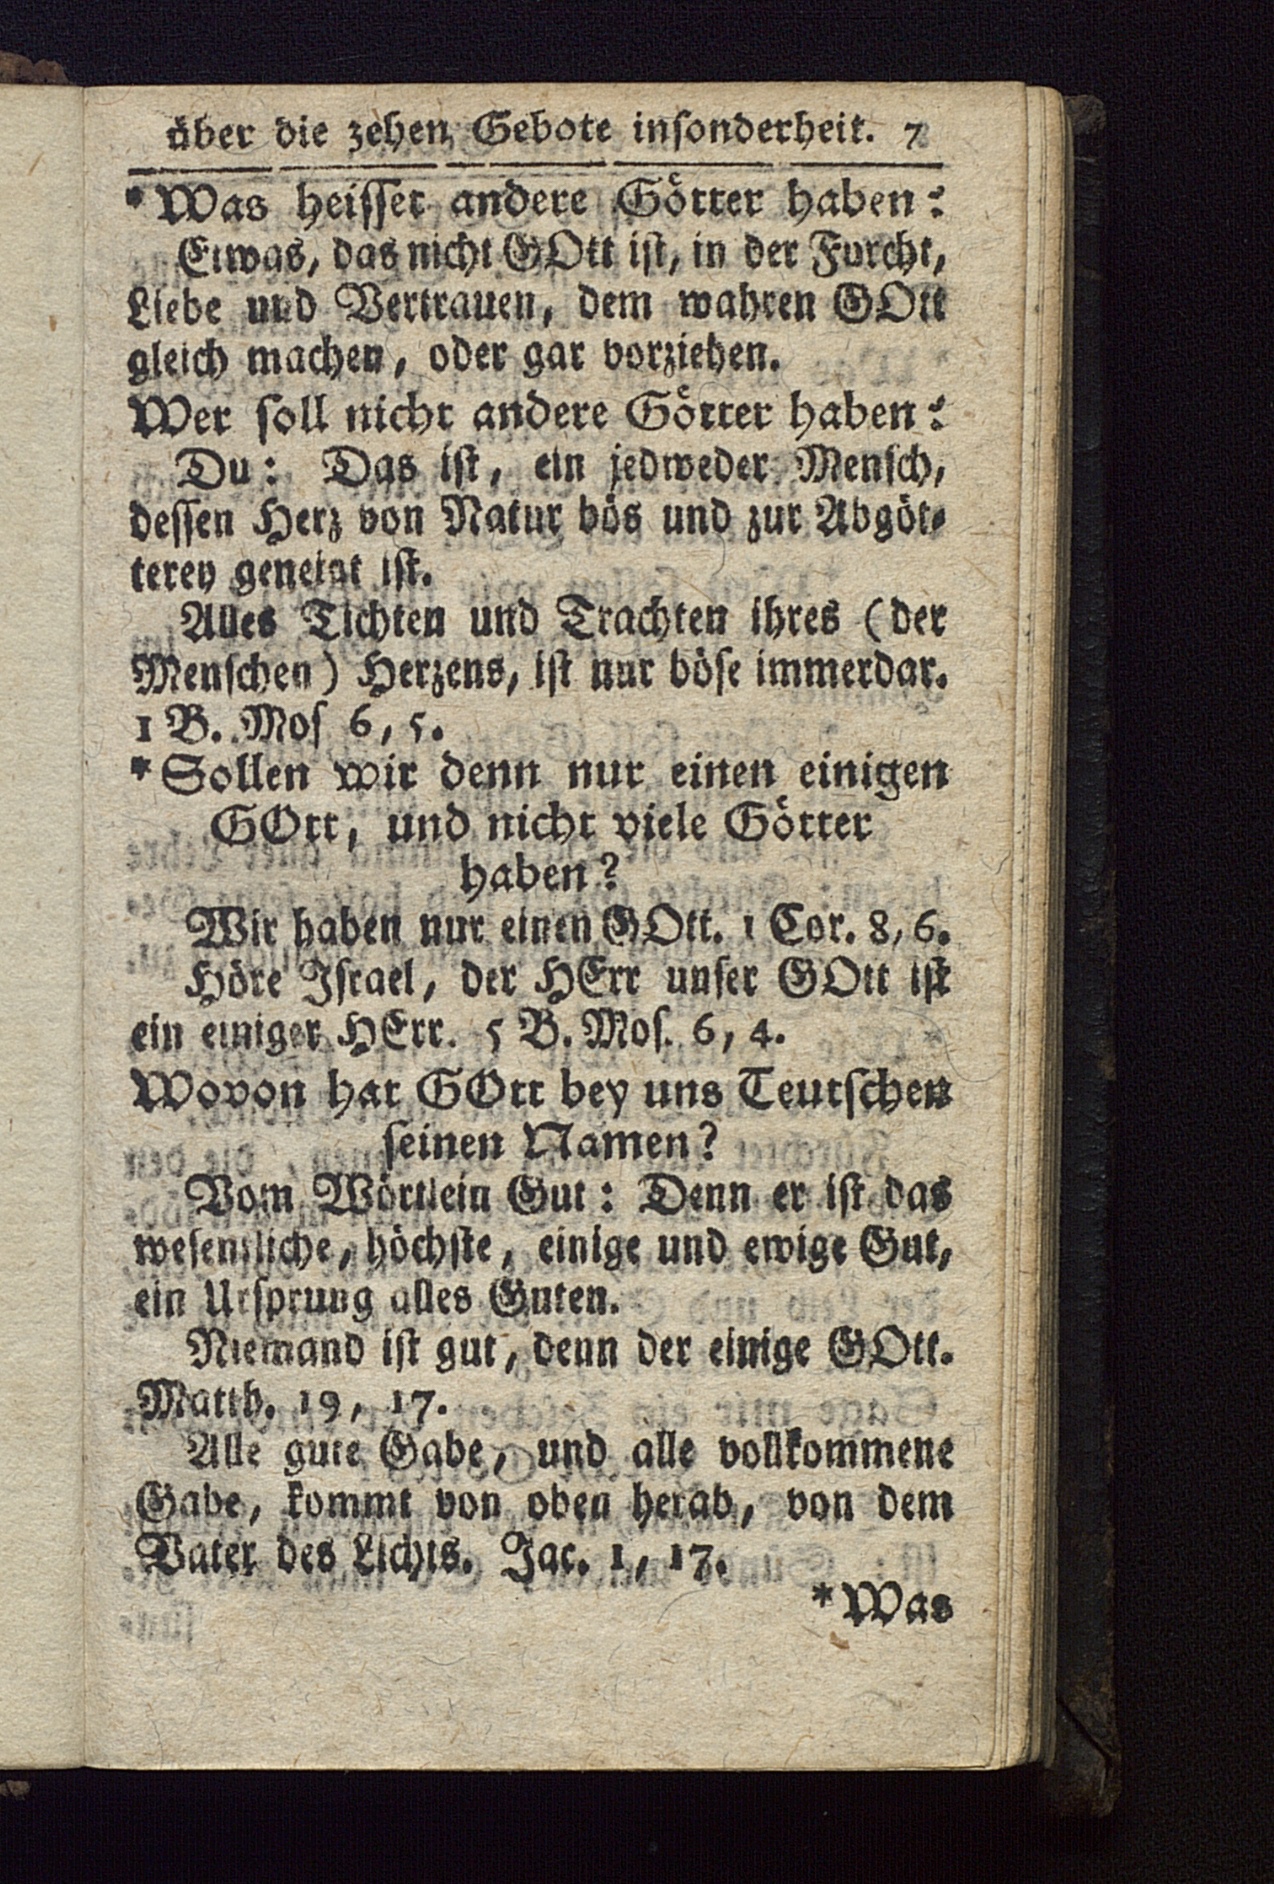 über die zehen Gebote insonderheit. 7
*Was heisset andere Götter haben?
Etwas, das nicht GOtt ist, in der Furcht,
Liebe und Vertrauen, dem wahren GOtt
gleich machen, oder gar vorziehen.
Wer soll nicht andere Götter haben?
Du: Das ist, ein jedweder Mensch,
dessen Herz von Natur bös und zur Abgöt-
terey geneigt ist.
Alles Tichten und Trachten ihres (der
Menschen) Herzens, ist nur böse immerdar.
1 B. Mos 6, 5.
*Sollen wir denn nur einen einigen
GOtt, und nicht viele Götter
haben?
Wir haben nur einen GOtt. 1 Cor. 8, 6.
Höre Israel, der HErr unser GOtt ist
ein einiger HErr. 5 B. Mos. 6, 4.
Wovon hat GOtt bey uns Teutschen
seinen Namen?
Vom Wörtlein Gut: Denn er ist das
wesentliche, höchste, einige und ewige Gut,
ein Ursprung alles Guten.
Niemand ist gut, denn der einige GOtt.
Matth. 19, 17.
Alle gute Gabe, und alle vollkommene
Gabe, kommt von oben herab, von dem
Vater des Lichts. Jac. 1, 17.
*Was